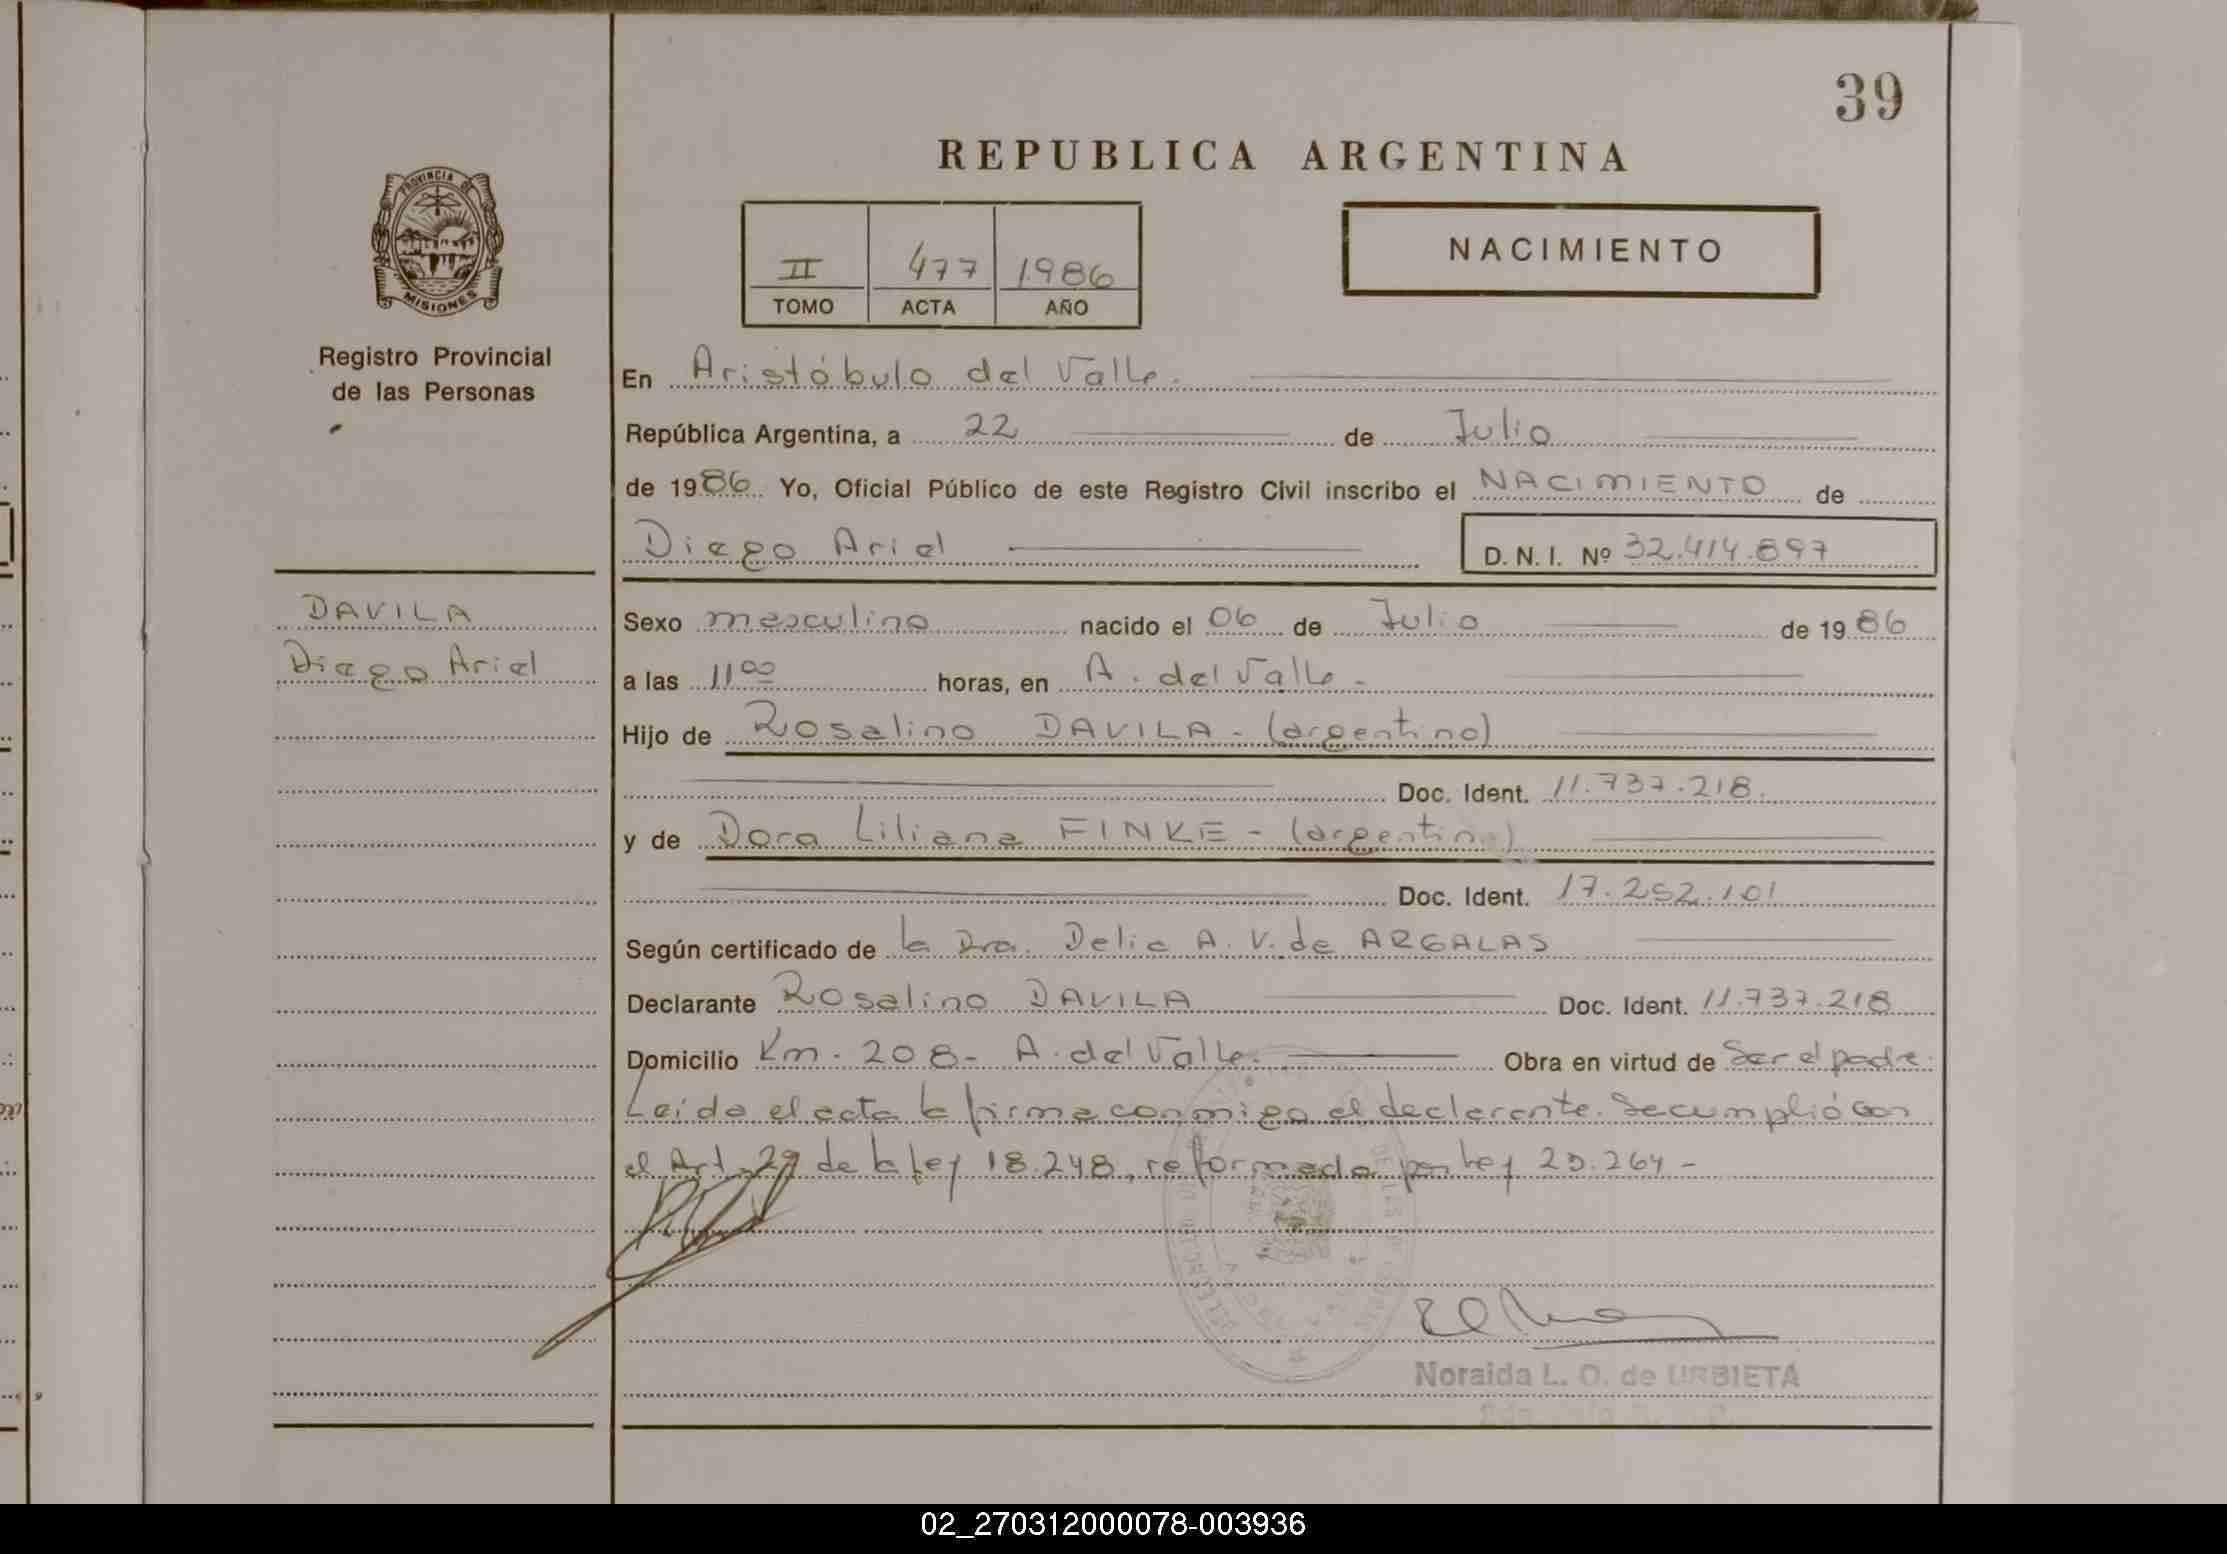 39
REPUBLICA ARGENTINA
PROVINCIA DE
MISIONES
Registro Provincial
de las Personas
II 477 1986
TOMO ACTA AÑO
NACIMIENTO
En Aristóbulo del Valle.
República Argentina, a 22 de Julio
de 1986 Yo, Oficial Público de este Registro Civil inscribo el NACIMIENTO de
Diego Ariel D. N. I. Nº 32.414.897
DAVILA
Diego Ariel
Sexo masculino nacido el 06 de Julio de 1986
a las 11 00 horas, en A. del Valle -
Hijo de Rosalino DAVILA - (argentino)
Doc. Ident. 11.737.218.
y de Dora Liliana FINKE - (argentina)
Doc. Ident. 17.252.101
Según certificado de la Dra. Delia A. V. de ARGALAS
Declarante Rosalino DAVILA Doc. Ident. 11.737.218
Domicilio Km. 208- A. del Valle. Obra en virtud de Ser el padre.
Leída el acta la firma conmigo el declarante. Se cumplió con
el Art. 29 de la Ley 18.248, reformada por Ley 20.264 -
Noraida L. O. de URBIETA
02_270312000078-003936